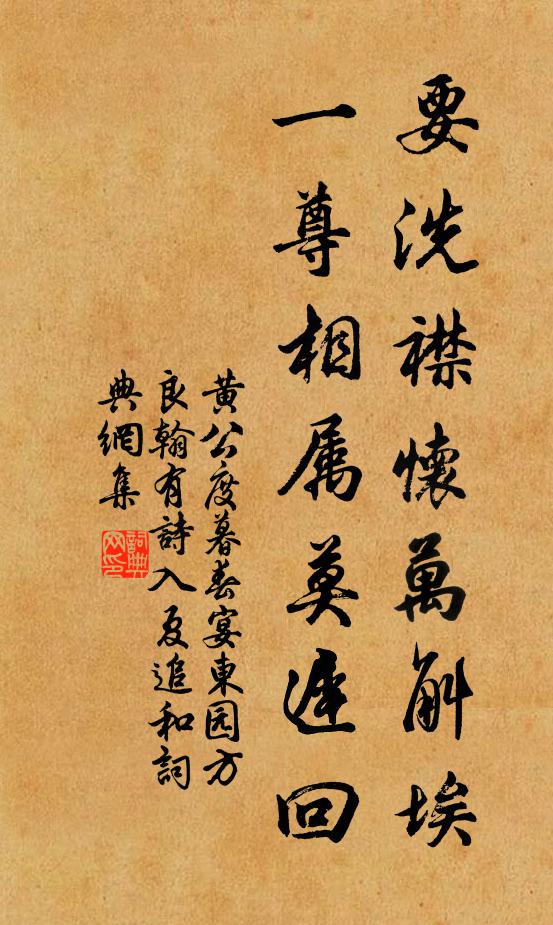 要洗襟懷萬斛埃
一尊相属莫遲回
黄公度暮春宴東园方
良翰有詩入夏追和詞
典網集
詞典
网印